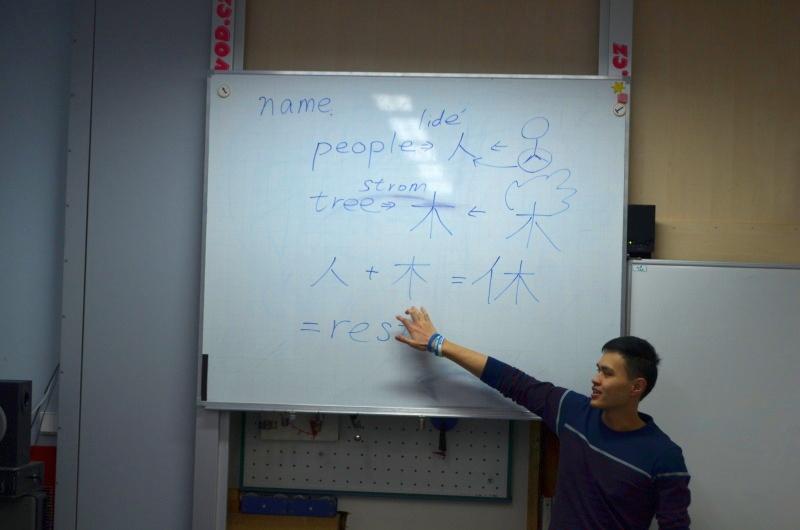 VOD.CZ
.CZ
name.
lidé
people ⇒ 人 ←
strom
tree ⇒ 木 ← 木
人 + 木 = 休
= rest